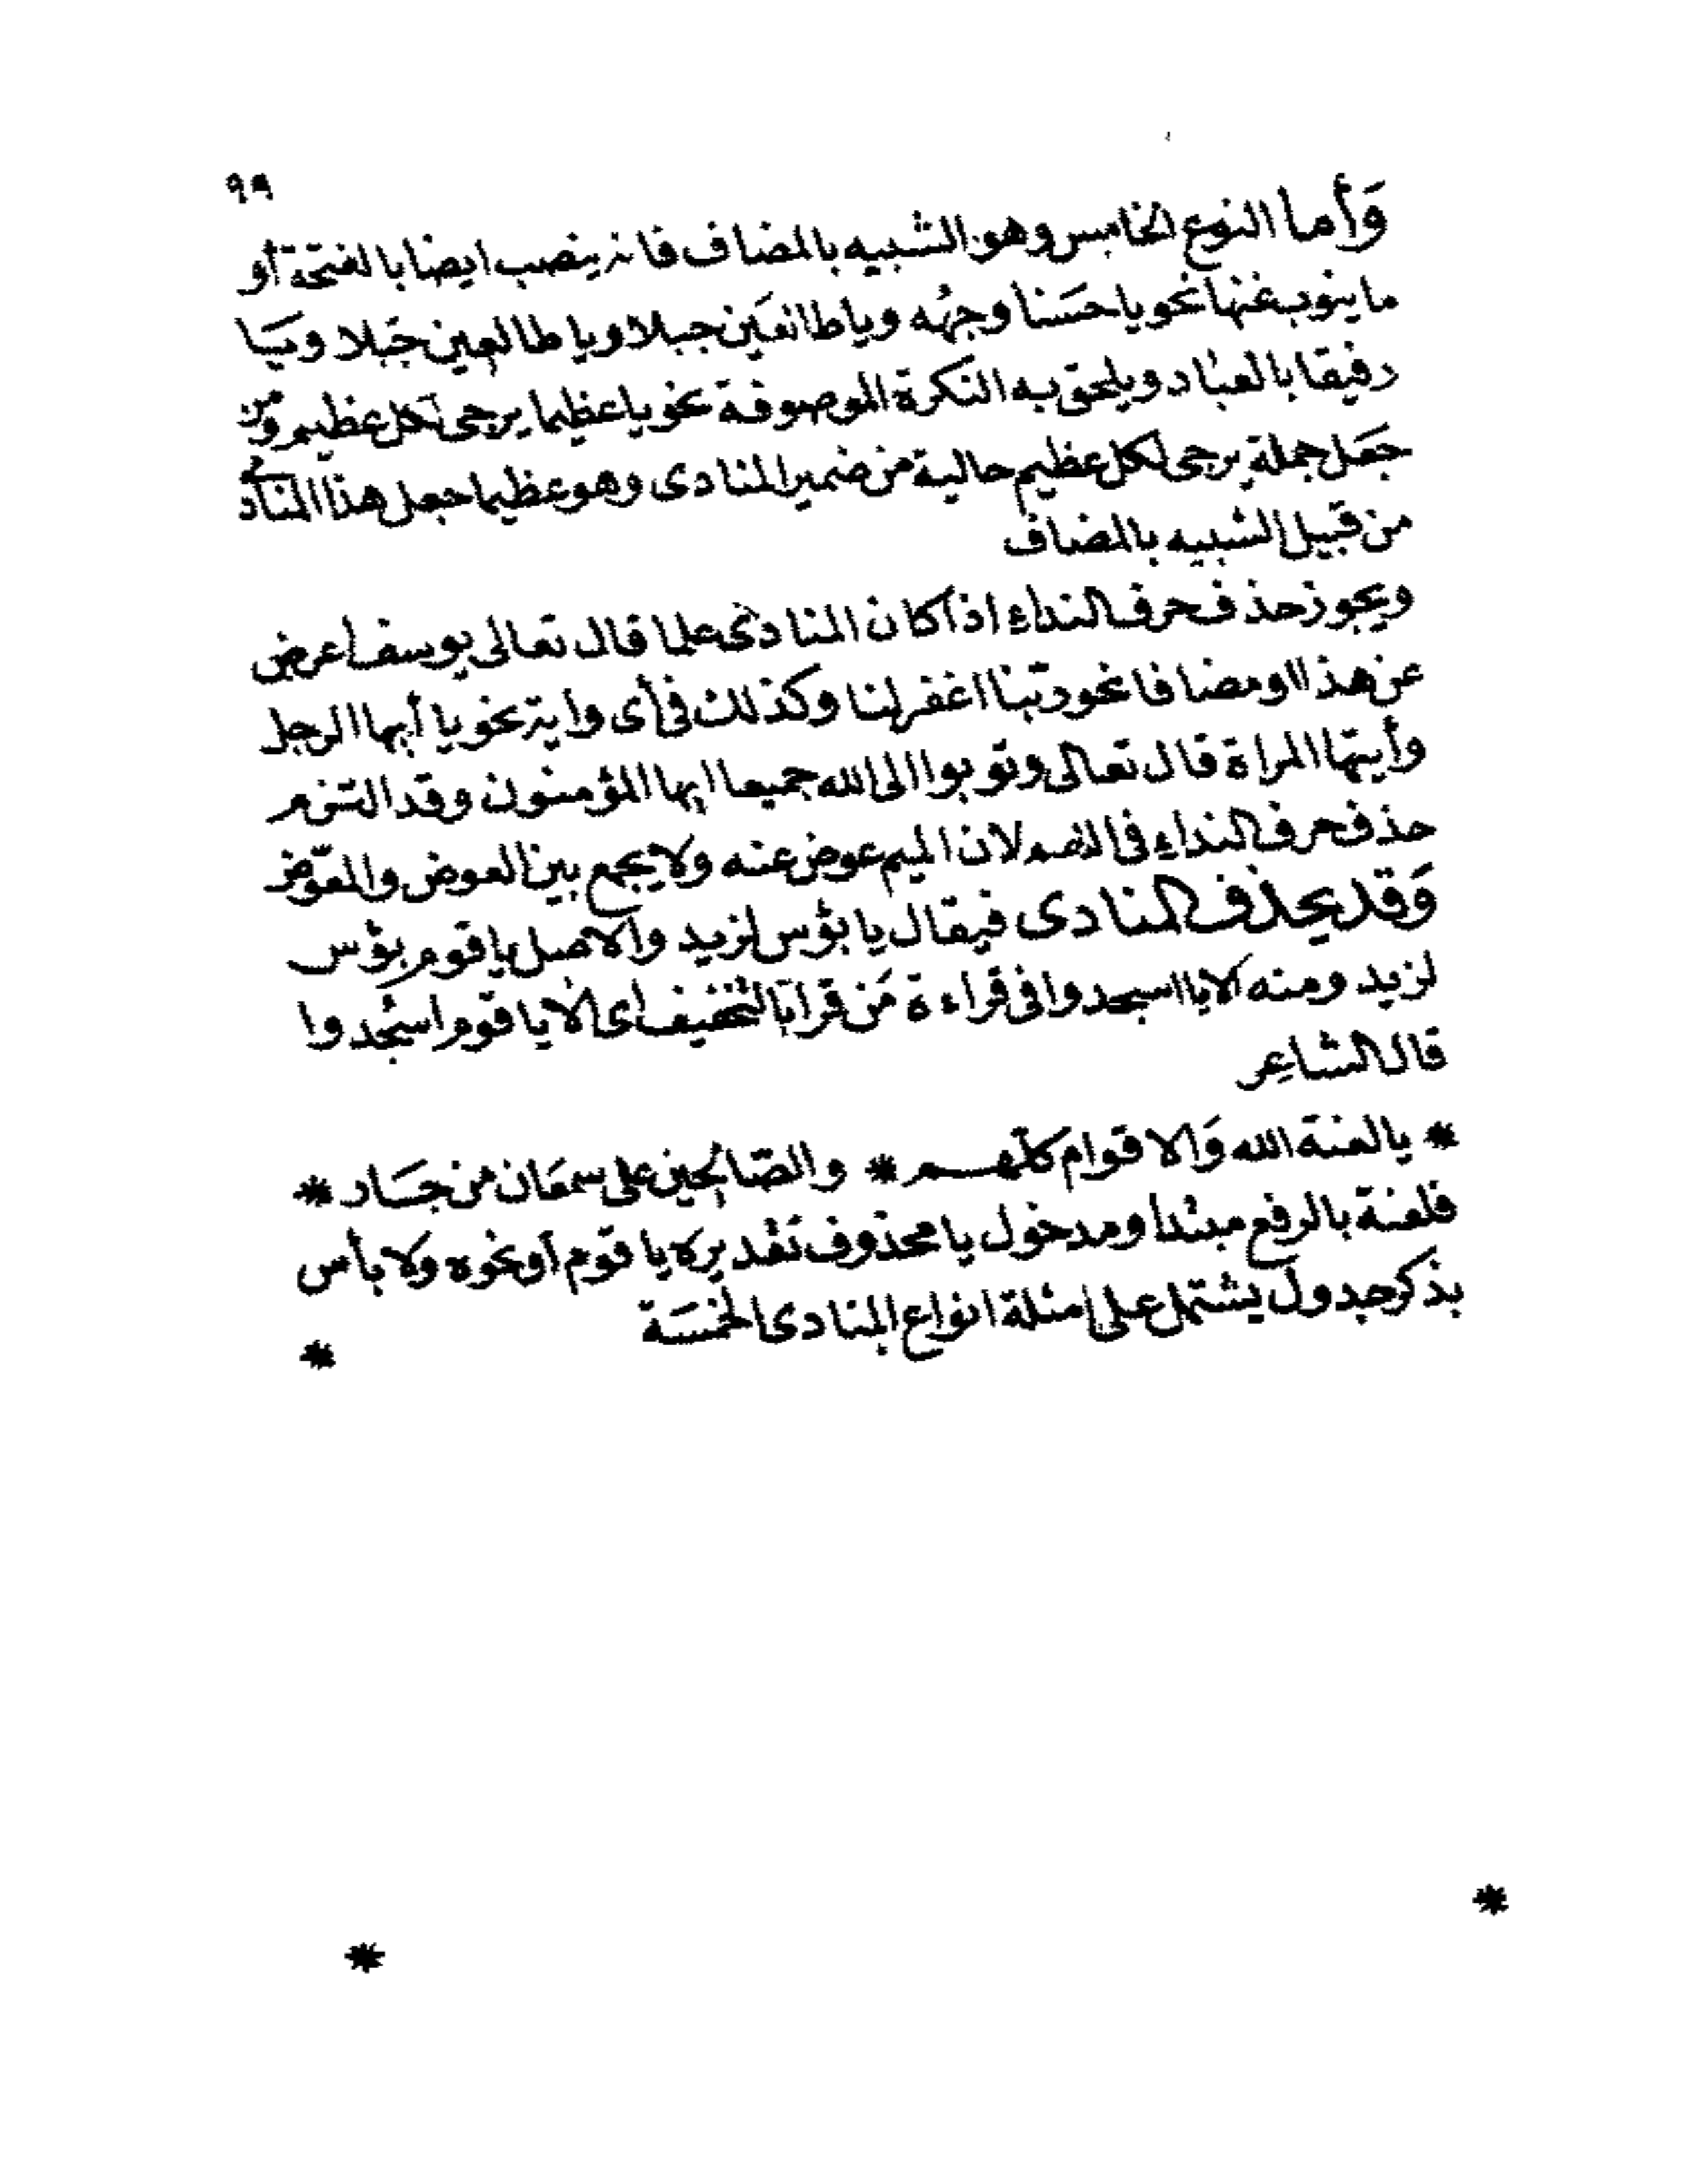 ٩٩
وَأما النوع الخامس وهو الشبيه بالمضاف فانه ينصب ايضا بالفتحة أو
ما ينوب عنها نحو يا حسَنا وجهُه ويا طالعَين جبلا ويا طالعِين جَبلا ويَا
رفيقا بالعباد ويلحق به النكرة الموصوفة نحو يا عظيما يرجى لكل عظيم ومن
جعَل جملة يرجى لكل عظيم حالية من ضمير المنادى وهو عظيما جعل هذا المنادى
من قبيل الشبيه بالمضاف
ويجوز حذف حرف النداء اذا كان المنادى علما قال تعالى يوسف أعرض
عن هذا او مضافا نحو ربّنا اغفر لنا وكذلك فى أى وأية نحو يا أيها الرجل
وأيتها المراة قال تعالى وتوبوا الى الله جميعا ايها المؤمنون وقد التزم
حذف حرف النداء فى اللهم لان الميم عوض عنه ولا يجمع بين العوض والمعوّض
وَقد يحذف المنادى فيقال يا بؤس لزيد والاصل يا قوم بؤس
لزيد ومنه ألا يا اسجدوا فى قراءة مَن قرا بالتخفيف أى ألا يا قوم اسجُدوا
قال الشاعِر
* يا لعنة الله وَالاقوام كلّهم * والصّالحين على سمعَان من جَار *
فلعنة بالرفع مبتدأ ومدخول يا محذوف تقديره يا قوم أو نحوه ولا بأس
بذكر جدول يشتمل على امثلة انواع المنادى الخمسَة
*
*
*